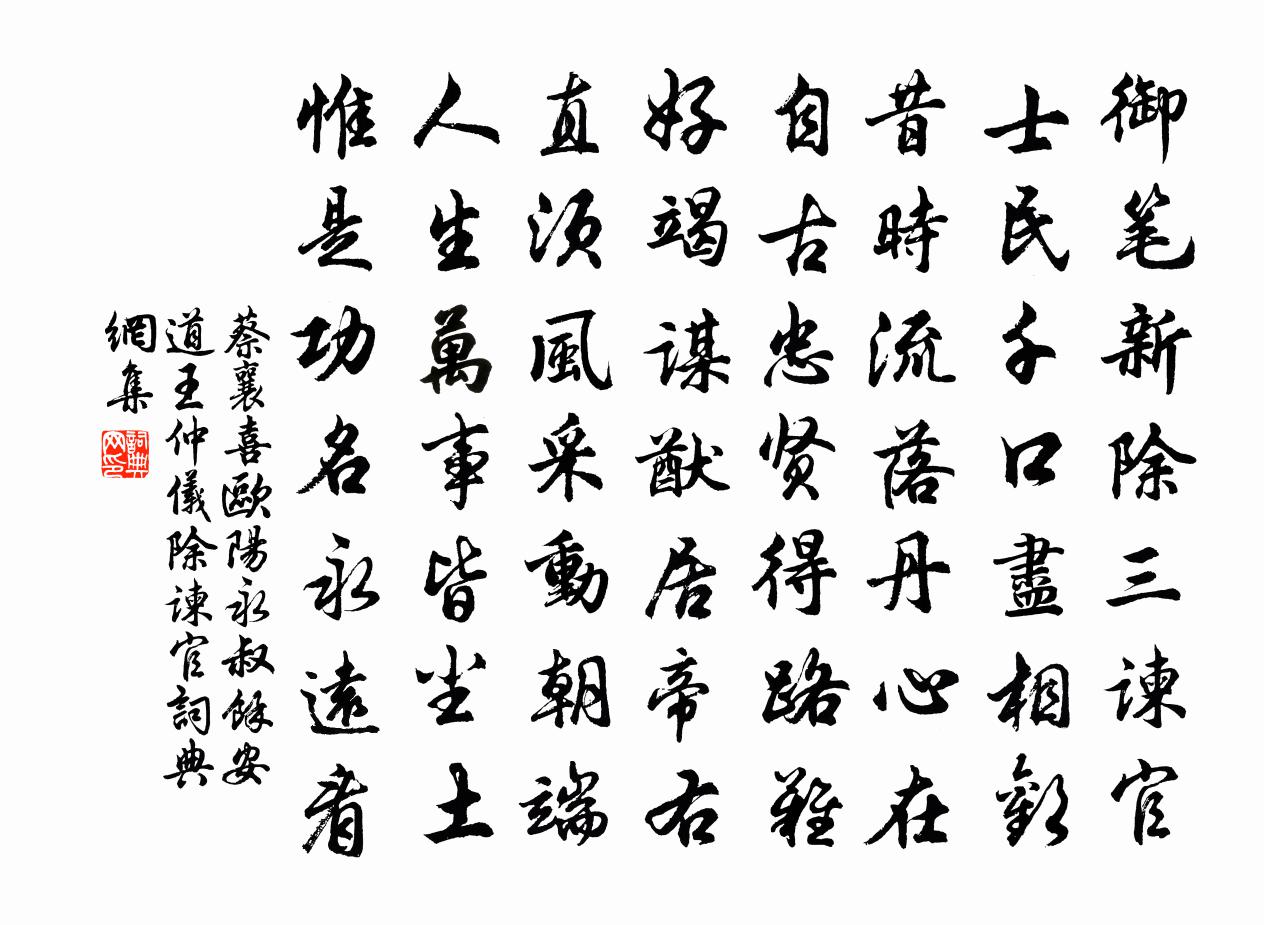 御笔新除三谏官
士民千口盡相歡
昔時流落丹心在
自古忠贤得路難
好竭谋猷居帝右
直须風采動朝端
人生萬事皆尘土
惟是功名永遠看
蔡襄喜歐陽永叔餘安
道王仲儀除谏官詞典
網集
詞典网印